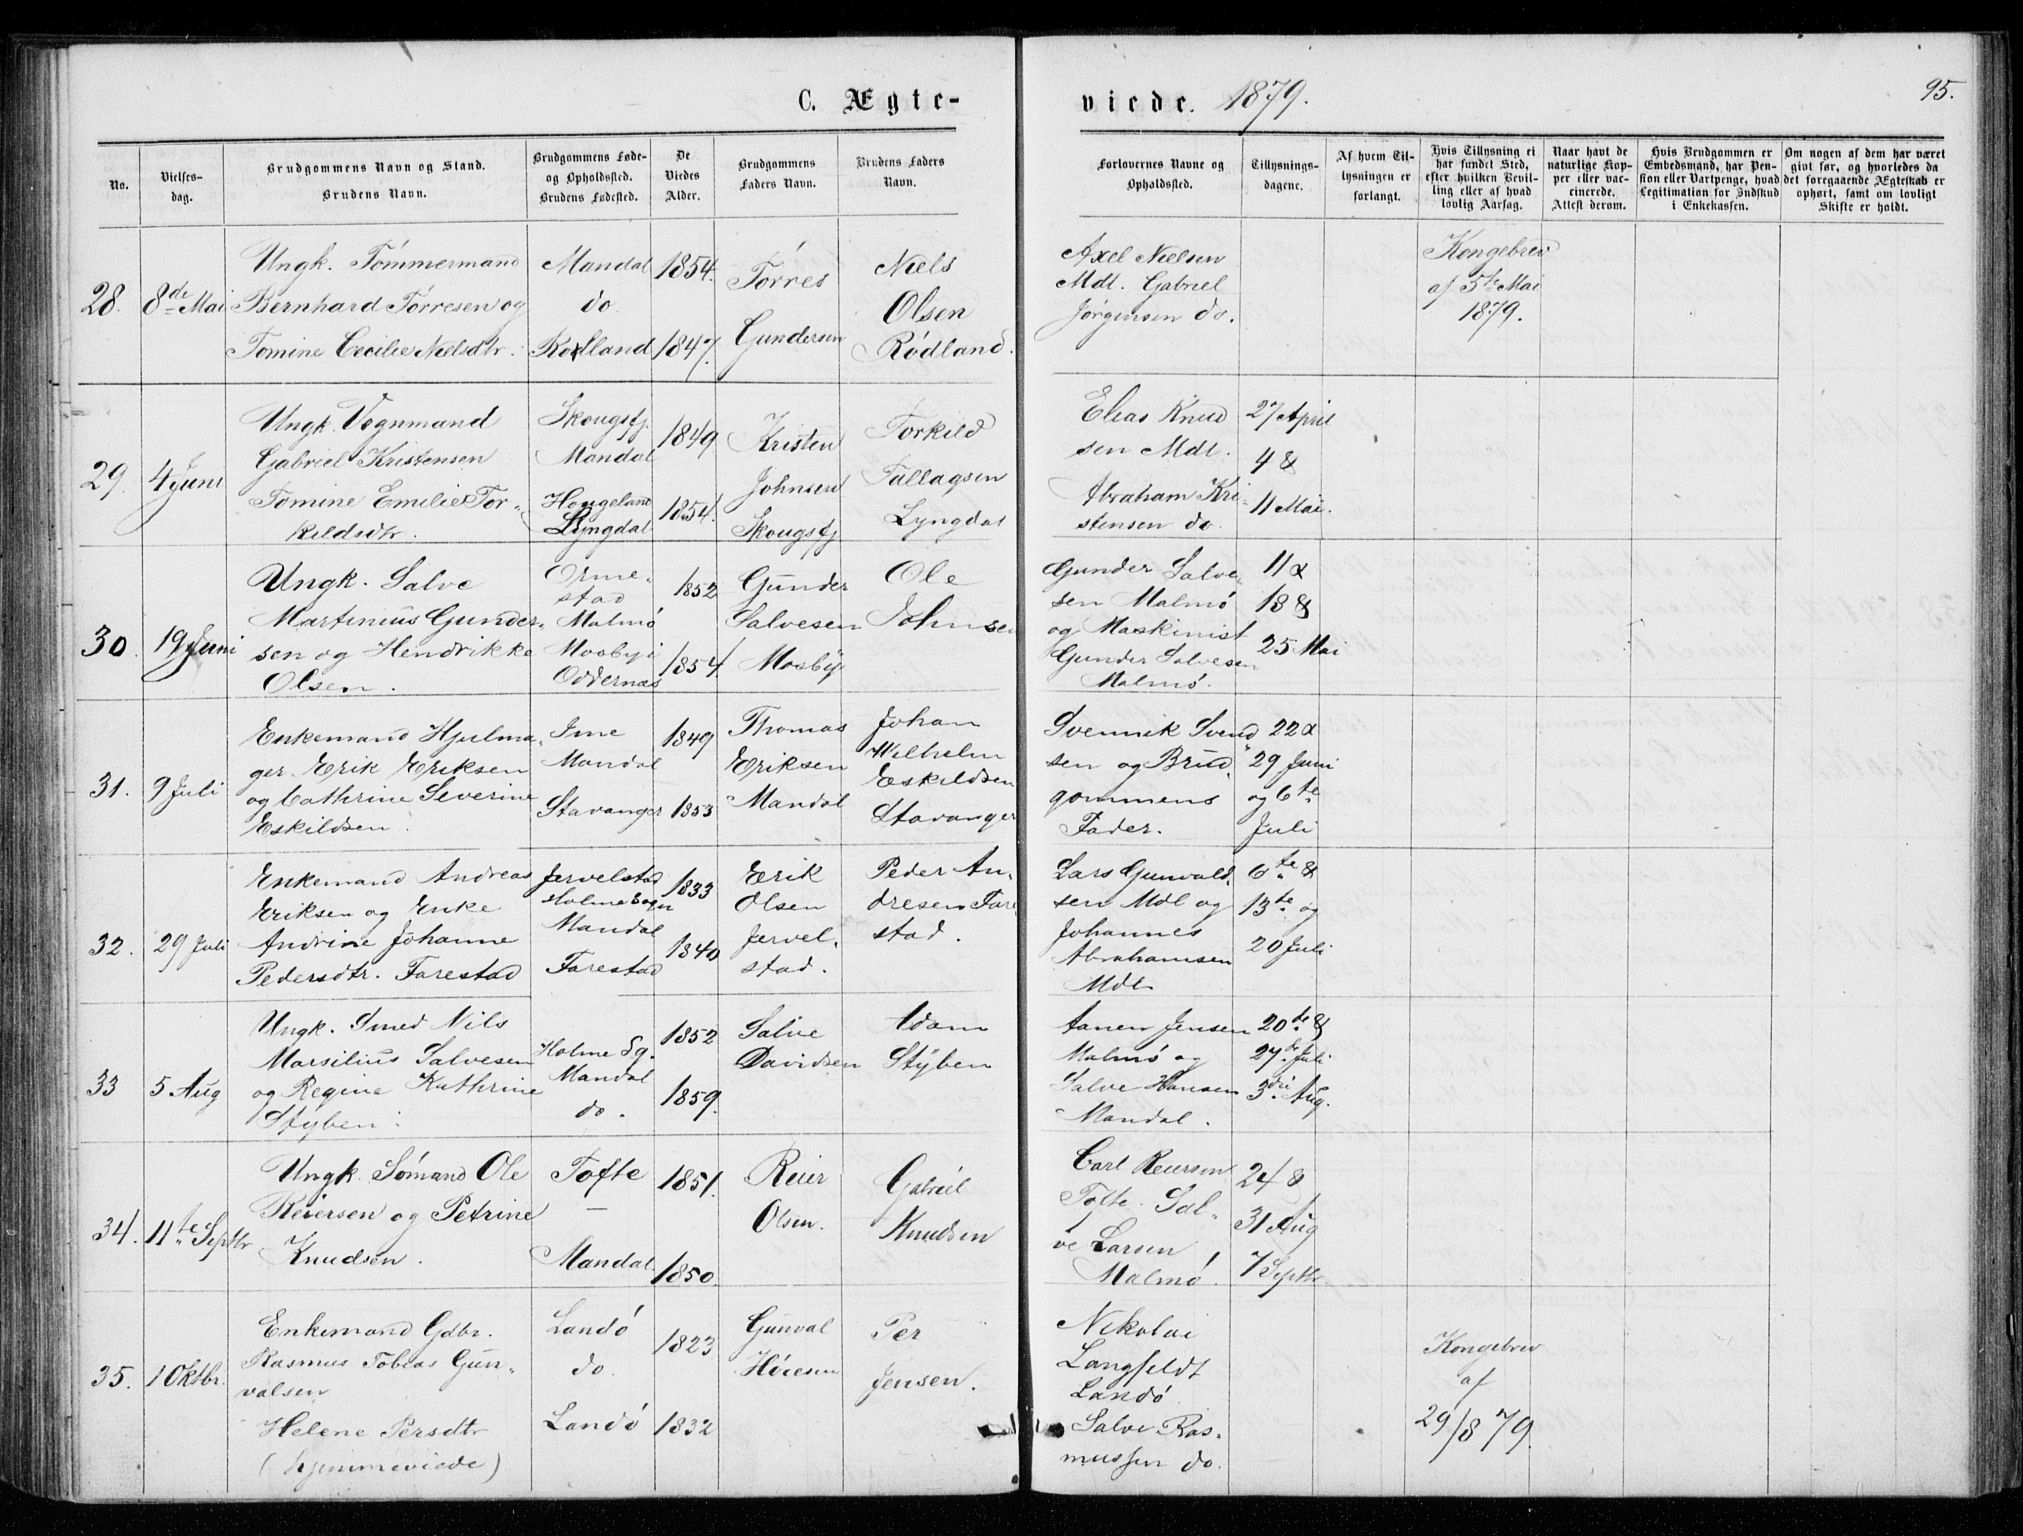 C. Ægte-
viede. 1879.
95.
No.
Vielses-
dag.
Brudgommens Navn og Stand.
Brudens Navn.
Brudgommens Føde-
og Opholdssted.
Brudens Fødested.
De
Viedes
Alder.
Brudgommens
Faders Navn.
Brudens Faders
Navn.
Forlovernes Navne og
Opholdssted.
Tillysnings-
dagene.
Af hvem Til-
lysningen er
forlangt.
Hvis Tillysning ei
har fundet Sted,
efter hvilken Bevil-
ling eller af hvad
lovlig Aarsag.
Naar havt de
naturlige Kop-
per eller vac-
cinerede.
Attest derom.
Hvis Brudgommen er
Embedsmand, har Pen-
sion eller Vartpenge, hvad
Legitimation for Indskud
i Enkekassen.
Om nogen af dem har været
givt før, og hvorledes da
det foregaaende Ægteskab er
ophørt, samt om lovligt
Skifte er holdt.
28.
8de Mai
Ungk. Tømmermand
Bernhard Tørresen og
Tomine Cecilie Nielsdtr.
Mandal
do.
Rødland
1854.
1847.
Tørres
Gundersen
Niels
Olsen
Rødland.
Axel Nielsen
Mdl. Gabriel
Jørgensen do.
Kongebrev
af 5te Mai
1879.
29.
4 Juni
Ungk. Vognmand
Gabriel Kristensen
Tomine Emilie Tor-
kildsdtr.
Skougsfj.
Mandal
Hougeland
Lyngdal
1849
1854.
Kristen
Johnsen
Skougsfj
Torkild
Tallagsen
Lyngdal
Elias Knud
sen Mdl.
Abraham Kri-
stensen do.
27 April
4 &
11 Mai.
30.
19 Juni
Ungk. Salve
Martinius Gunder-
sen og Hendrikke
Olsen.
Orme-
stad
Malmø
Mosby i
Oddernæs
1852
1854
Gunder
Salvesen
Mosby
Ole
Johnsen
Gunder Salve-
sen Malmø
og Maskinist
Gunder Salvesen
Malmø.
11 &
18 &
25 Mai
31.
9 Juli
Enkemand Hjulma-
ger Erik Eriksen
og Cathrine Severine
Eskildsen.
Ime
Mandal
Stavanger
1849
1853
Thomas
Eriksen
Mandal
Johan
Wilhelm
Eskildsen
Stavanger
Svennik Svend
sen og Brud-
gommens
Fader.
22 &
29 Juni
og 6te
Juli
32.
29 Juli
Enkemand Andreas
Eriksen og Enke
Andrine Johanne
Pedersdtr. Farestad
Jervelstad
Holme Sogn
Mandal
Farestad
1833
1840
Erik
Olsen
Jervel-
stad.
Peder An-
dresen Fare
stad.
Lars Gunvald-
sen Mdl og
Johannes
Abrahamsen
Mdl
6te &
13te og
20 Juli
33
5 Aug
Ungk. Smed Nils
Marsilius Salvesen
og Regine Kathrine
Styben.
Holme Sg.
Mandal
do.
1852
1859.
Salve
Davidsen
Adam
Styben
Aanen Jensen
Malmø og
Salve Hansen
Mandal.
20de &
27de Juli
3die Aug.
34.
11te Septbr
Ungk. Sømand Ole
Reiersen og Petrine
Knudsen.
Tofte
—
Mandal.
1851.
1850.
Reier
Olsen.
Gabriel
Knudsen
Carl Reiersen
Tofte. Sal-
ve Larsen
Malmø.
24 &
31 Aug
7 Septbr.
35.
1 Oktbr.
Enkemand Gdbr.
Rasmus Tobias Gun-
valsen
Helene Persdtr
(hjemmeviede)
Landø
do.
Landø
1823
1832
Gunval
Per
Jensen.
Nikolai
Langfeldt
Landø
Salve Ras-
mussen do.
Kongebrev
af
29/8 79.